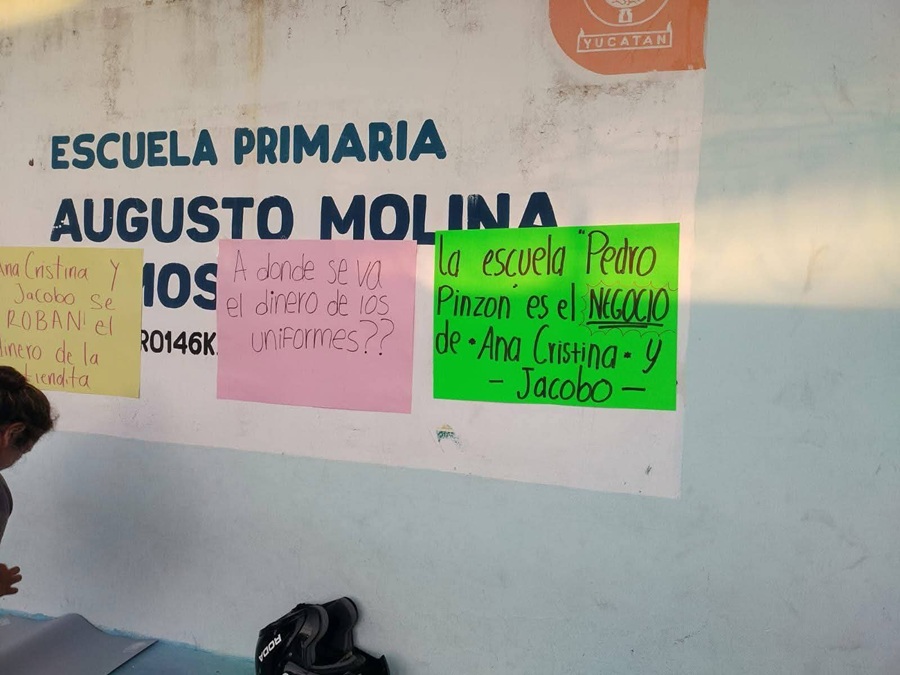 YUCATAN
ESCUELA PRIMARIA
AUGUSTO MOLINA
MOS
RO146K
Ana Cristina Y
Jacobo se
ROBAN el
dinero de la
tiendita
A donde se va
el dinero de los
uniformes??
La escuela "Pedro
Pinzon" es el NEGOCIO
de • Ana Cristina • y
- Jacobo -
RODA